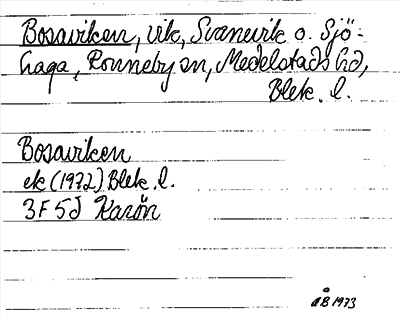 Bosaviken, vik, Svanevik o. Sjö-
haga, Ronneby sn, Medelstads hd,
Blek. l.
Bosaviken
ek (1972) Blek. l.
3F5d Karön
ÅB 1973